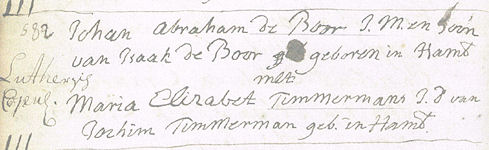 582 Johan Abraham de Boor J.M. en Soon
van Isaak de Boor geboren in Hamb
met
Luthers
Copul. Maria Elizabet Timmermans J.D van
Jochim Timmerman geb. in Hamb.